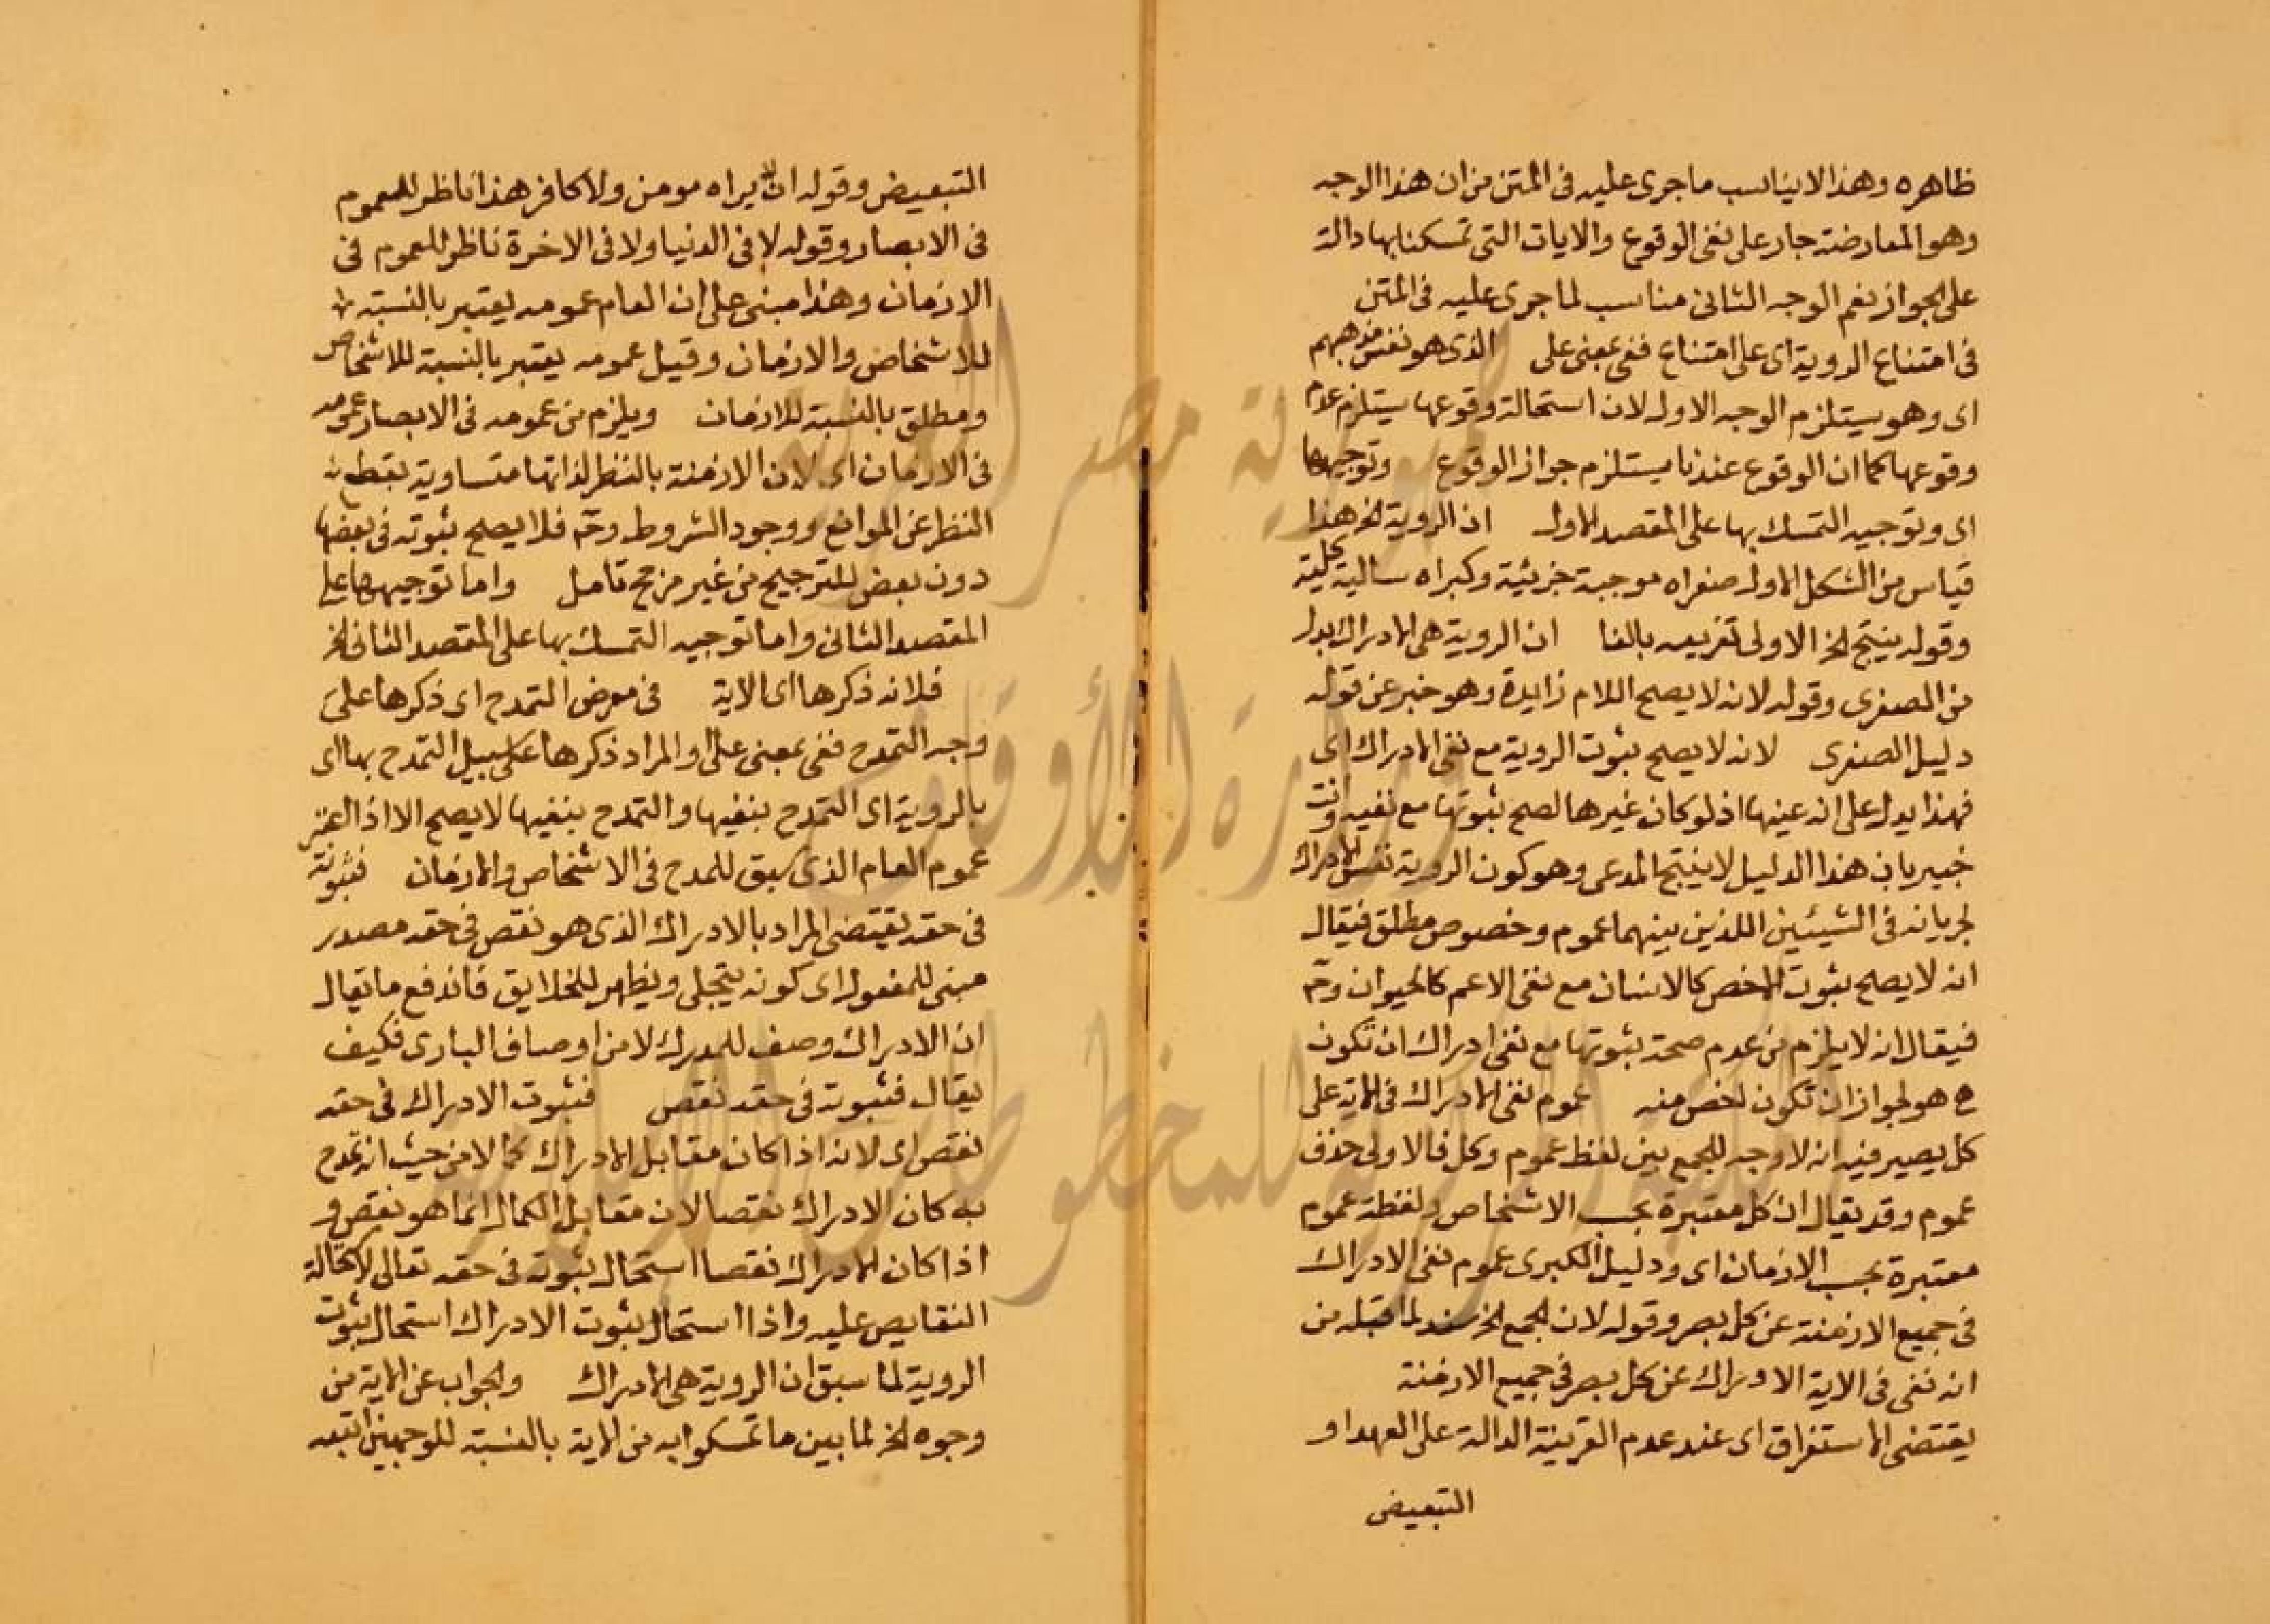 ظاهره وهذا لا يناسب ما جرى عليه فى المتن من ان هذا الوجه
وهو المعارضة جار على نفى الوقوع والايات التى تمسكنا بها دالة
على الجواز نعم الوجه الثانى مناسب لما جرى عليه فى المتن
فى امتناع الروية اى على امتناع ففى بمعنى على الذى هو نفس مذهبهم
اى وهو يستلزم الوجه الاول لان استحالة وقوعها يستلزم عدم
وقوعها كما ان الوقوع عندنا يستلزم جواز الوقوع وتوجيهها
اى وتوجيه التمسك بها على المقصد الاول ان الروية الخ هذا
قياس من الشكل الاول صغراه موجبة جزئية وكبراه سالبة كلية
وقوله ينتج الخ الاولى تفريعه بالفا ان الروية هى الادراك بدل
من الصغرى وقوله لانه لا يصح اللام زايدة وهو خبر عن قوله
دليل الصغرى لانه لا يصح ثبوت الروية مع نفى الادراك اى
فهذا يدل على انه عينها اذ لو كان غيرها لصح ثبوتها مع نفيه وانت
خبير بان هذا الدليل لا ينتج المدعى وهو كون الروية نفس الادراك
لجريانه فى الشيئين اللذين بينهما عموم وخصوص مطلق فيقال
انه لا يصح ثبوت الاخص كالانسان مع نفى الاعم كالحيوان وح
فيقال انه لا يلزم من عدم صحة ثبوتها مع نفى ادراك ان تكون
ح هو لجواز ان تكون اخص منه عموم نفى الادراك فى الاية على
كل بصير فيه انه لا وجه للجمع بين لفظ عموم وكل فالاولى حذف
عموم وقد يقال ان كل معتبرة بحسب الاشخاص ولفظة عموم
معتبرة بحسب الازمان اى ودليل الكبرى عموم نفى الادراك
فى جميع الازمنة عن كل بصر وقوله لان الجمع الخ سند لما قبله من
انه نفى فى الاية الادراك عن كل بصر فى جميع الازمنة
يقتضى الاستغراق اى عند عدم القرينة الدالة على العهد او
التبعيض
التبعيض وقوله ان يراه مومن ولا كافر هذا ناظر للعموم
فى الابصار وقوله لا فى الدنيا ولا فى الاخرة ناظر للعموم فى
الازمان وهذا مبنى على ان العام عمومه يعتبر بالنسبة
للاشخاص والازمان وقيل عمومه يعتبر بالنسبة للاشخاص
ومطلق بالنسبة للازمان ويلزم من عمومه فى الابصار عمومه
فى الازمان اى لان الازمنة بالنظر لذاتها متساوية بقطع
النظر عن الموانع ووجود الشروط وح فلا يصح ثبوته فى بعضها
دون بعض للترجيح من غير مرجح تامل واما توجيهها على
المقصد الثانى واما توجيه التمسك بها على المقصد الثانى الخ
فلانه ذكرها اى الاية فى معرض التمدح اى ذكرها على
وجه التمدح ففى بمعنى على او المراد ذكرها على سبيل التمدح بها اى
بالروية اى التمدح بنفيها والتمدح بنفيها لا يصح الا اذا اعتبر
عموم العام الذى سبق للمدح فى الاشخاص والازمان فثبوته
فى حقه يقتضى المراد بالادراك الذى هو نقص فى حقه مصدر
مبنى للمفعول اى كونه يتجلى ويظهر للخلايق فاندفع ما يقال
ان الادراك وصف للمدرك لا من اوصاف البارى فكيف
يقال فثبوته فى حقه نقص فثبوت الادراك فى حقه
نقص اى لانه اذا كان مقابل الادراك كمالا من حيث انه تمدح
به كان الادراك نقصا لان مقابل الكمال انما هو نقص و
اذا كان الادراك نقصا استحال ثبوته فى حقه تعالى لاستحالة
النقايص عليه واذا استحال ثبوت الادراك استحال ثبوت
الروية لما سبق ان الروية هى الادراك والجواب عن الاية من
وجوه الخ لما بين ما تمسكوا به من الاية بالنسبة للوجهين اتبعه
جمهورية مصر العربية
وزارة الأوقاف
المكتبة المركزية للمخطوطات الإسلامية